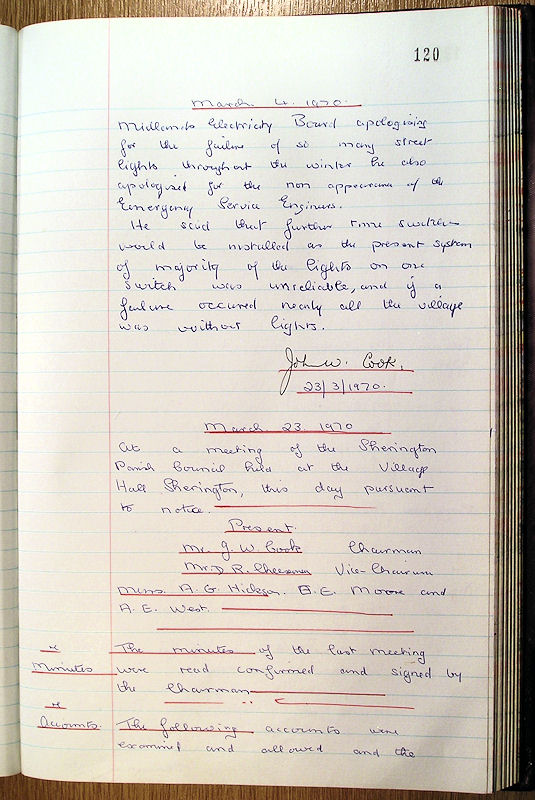 120
March 4. 1970.
Midlands Electricity Board apologising
for the failure of so many street
lights throughout the winter he also
apologised for the non appearance of the
Emergency Service Engineers.
He said that further time switches
would be installed as the present system
of majority of the lights on one
switch was unreliable, and if a
failure occured nearly all the village
was without lights.
John W. Cook.
23/3/1970.
March 23 1970
At a meeting of the Sherington
Parish Council held at the Village
Hall Sherington, this day pursuant
to notice.
Present.
Mr. J. W. Cook Chairman
Mr. D. R. Cheesman Vice-Chairman
Messrs A. G. Hickson. B. E. Moore and
A. E. West.
The minutes of the last meeting
Minutes were read confirmed and signed by
the Chairman
Accounts. The following accounts were
examined and allowed and the